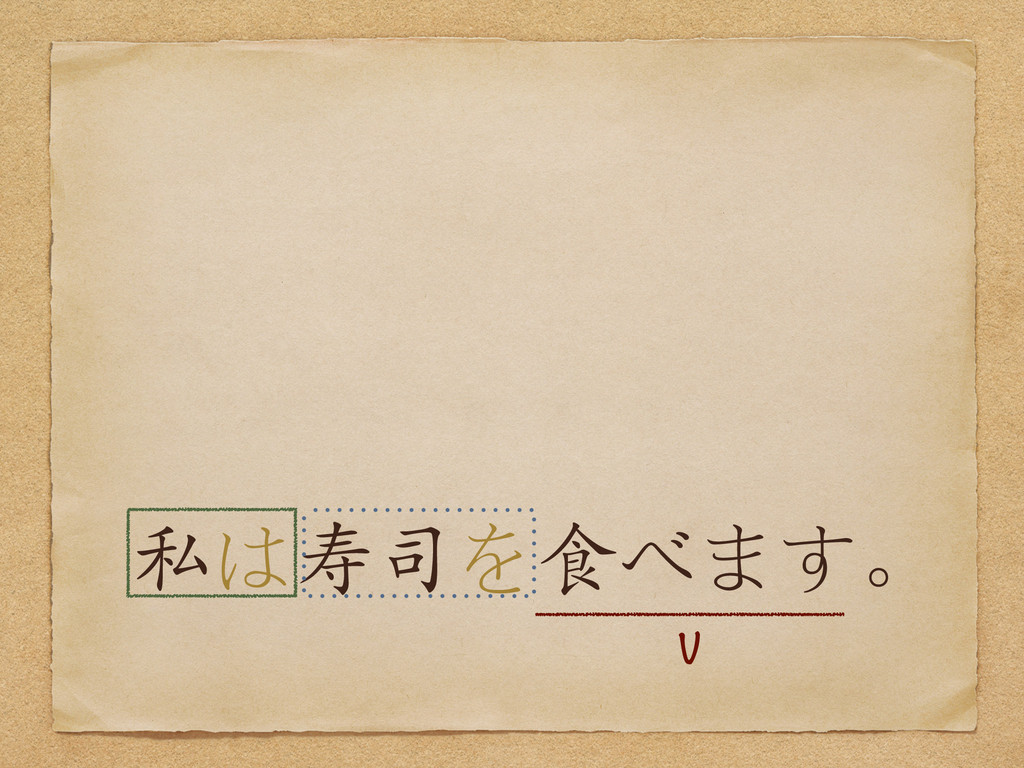 私は寿司を食べます。
V